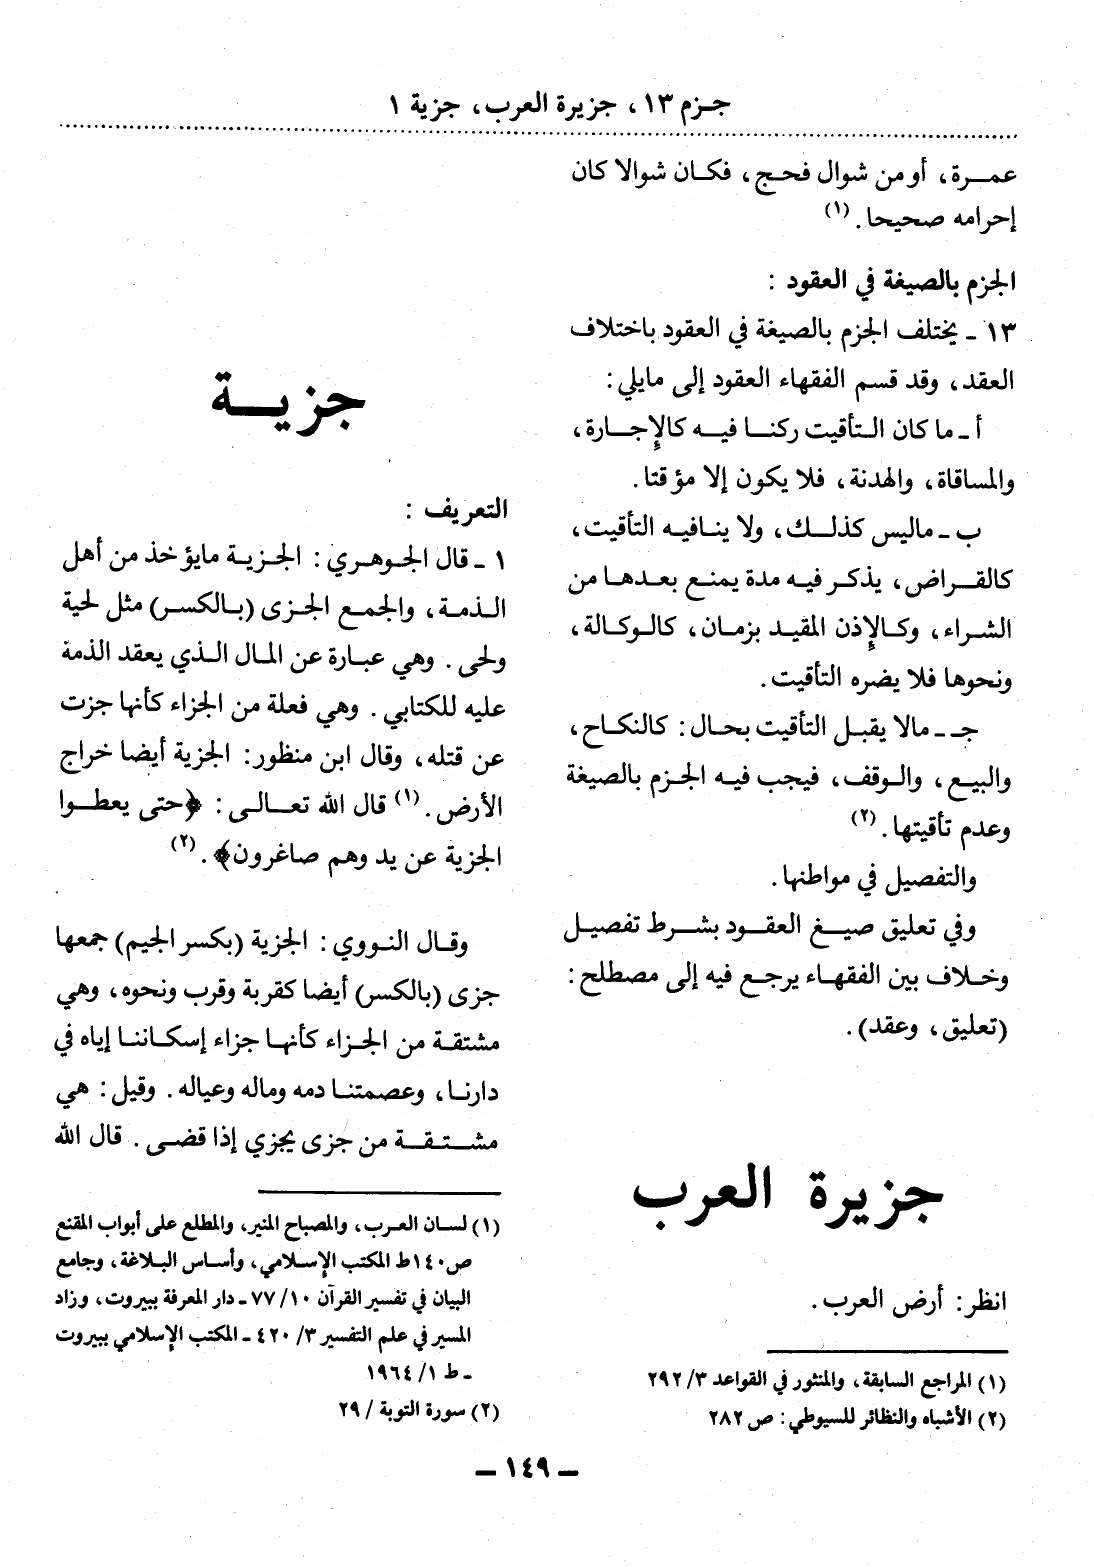 جـزم ١٣، جزيرة العرب، جزية ١
عمـــرة، أو من شوال فحـج، فكـان شوالا كان
إحرامه صحيحا. (١)
الجزم بالصيغة في العقود :
١٣ ـ يختلف الجزم بالصيغة في العقود باختلاف
العقد، وقد قسم الفقهاء العقود إلى مايلي:
أ ـ ما كان التأقيت ركنـا فيـه كالإجـارة،
والمساقاة، والهدنة، فلا يكون إلا مؤقتا.
ب ـ ماليس كذلـك، ولا ينـافيـه التأقيت،
كالقـراض، يذكـر فيـه مدة يمنـع بعـدهـا من
الشراء، وكـالإذن المقيـد بزمـان، كالـوكـالة،
ونحوها فلا يضره التأقيت.
جـ ـ مالا يقبـل التأقيت بحـال: كالنكـاح،
والبيـع، والـوقف، فيجب فيـه الجـزم بالصيغة
وعدم تأقيتها. (٢)
والتفصيل في مواطنها.
وفي تعليق صيـغ العقـود بشـرط تفصيـل
وخـلاف بين الفقهـاء يرجـع فيه إلى مصطلح:
(تعليق، وعقد).
جزيرة العرب
انظر: أرض العرب.
(١) المراجع السابقة، والمنثور في القواعد ٣/ ٢٩٢
(٢) الأشباه والنظائر للسيوطي: ص ٢٨٢
جزيـــة
التعريف :
١ ـ قال الجـوهـري: الجـزيـة مايؤخذ من أهل
الـذمـة، والجمع الجـزى (بـالكسـر) مثل لحية
ولحى. وهي عبـارة عن المـال الـذي يعقد الذمة
عليه للكتابي. وهي فعلة من الجزاء كأنها جزت
عن قتله، وقال ابن منظور: الجزية أيضا خراج
الأرض. (١) قال الله تعـالـى: ﴿حتى يعطـوا
الجزية عن يد وهم صاغرون﴾. (٢)
وقـال النـووي: الجزية (بكسر الجيم) جمعها
جزى (بالكسر) أيضا كقربة وقرب ونحوه، وهي
مشتقـة من الجـزاء كأنهـا جزاء إسكـاننـا إياه في
دارنـا، وعصمتنـا دمه وماله وعياله. وقيل: هي
مشـتـقـة من جزى يجزي إذا قضـى. قال الله
(١) لسـان العـرب، والمصباح المنير، والمطلع على أبواب المقنع
ص ١٤٠ ط المكتب الإسـلامي، وأسـاس البـلاغة، وجامع
البيان في تفسير القرآن ١٠/ ٧٧ ـ دار المعرفة ببيروت، وزاد
المسير في علم التفسير ٣/ ٤٢٠ ـ المكتب الإسلامي ببيروت
ـ ط ١/ ١٩٦٤
(٢) سورة التوبة / ٢٩
ـ ١٤٩ ـ